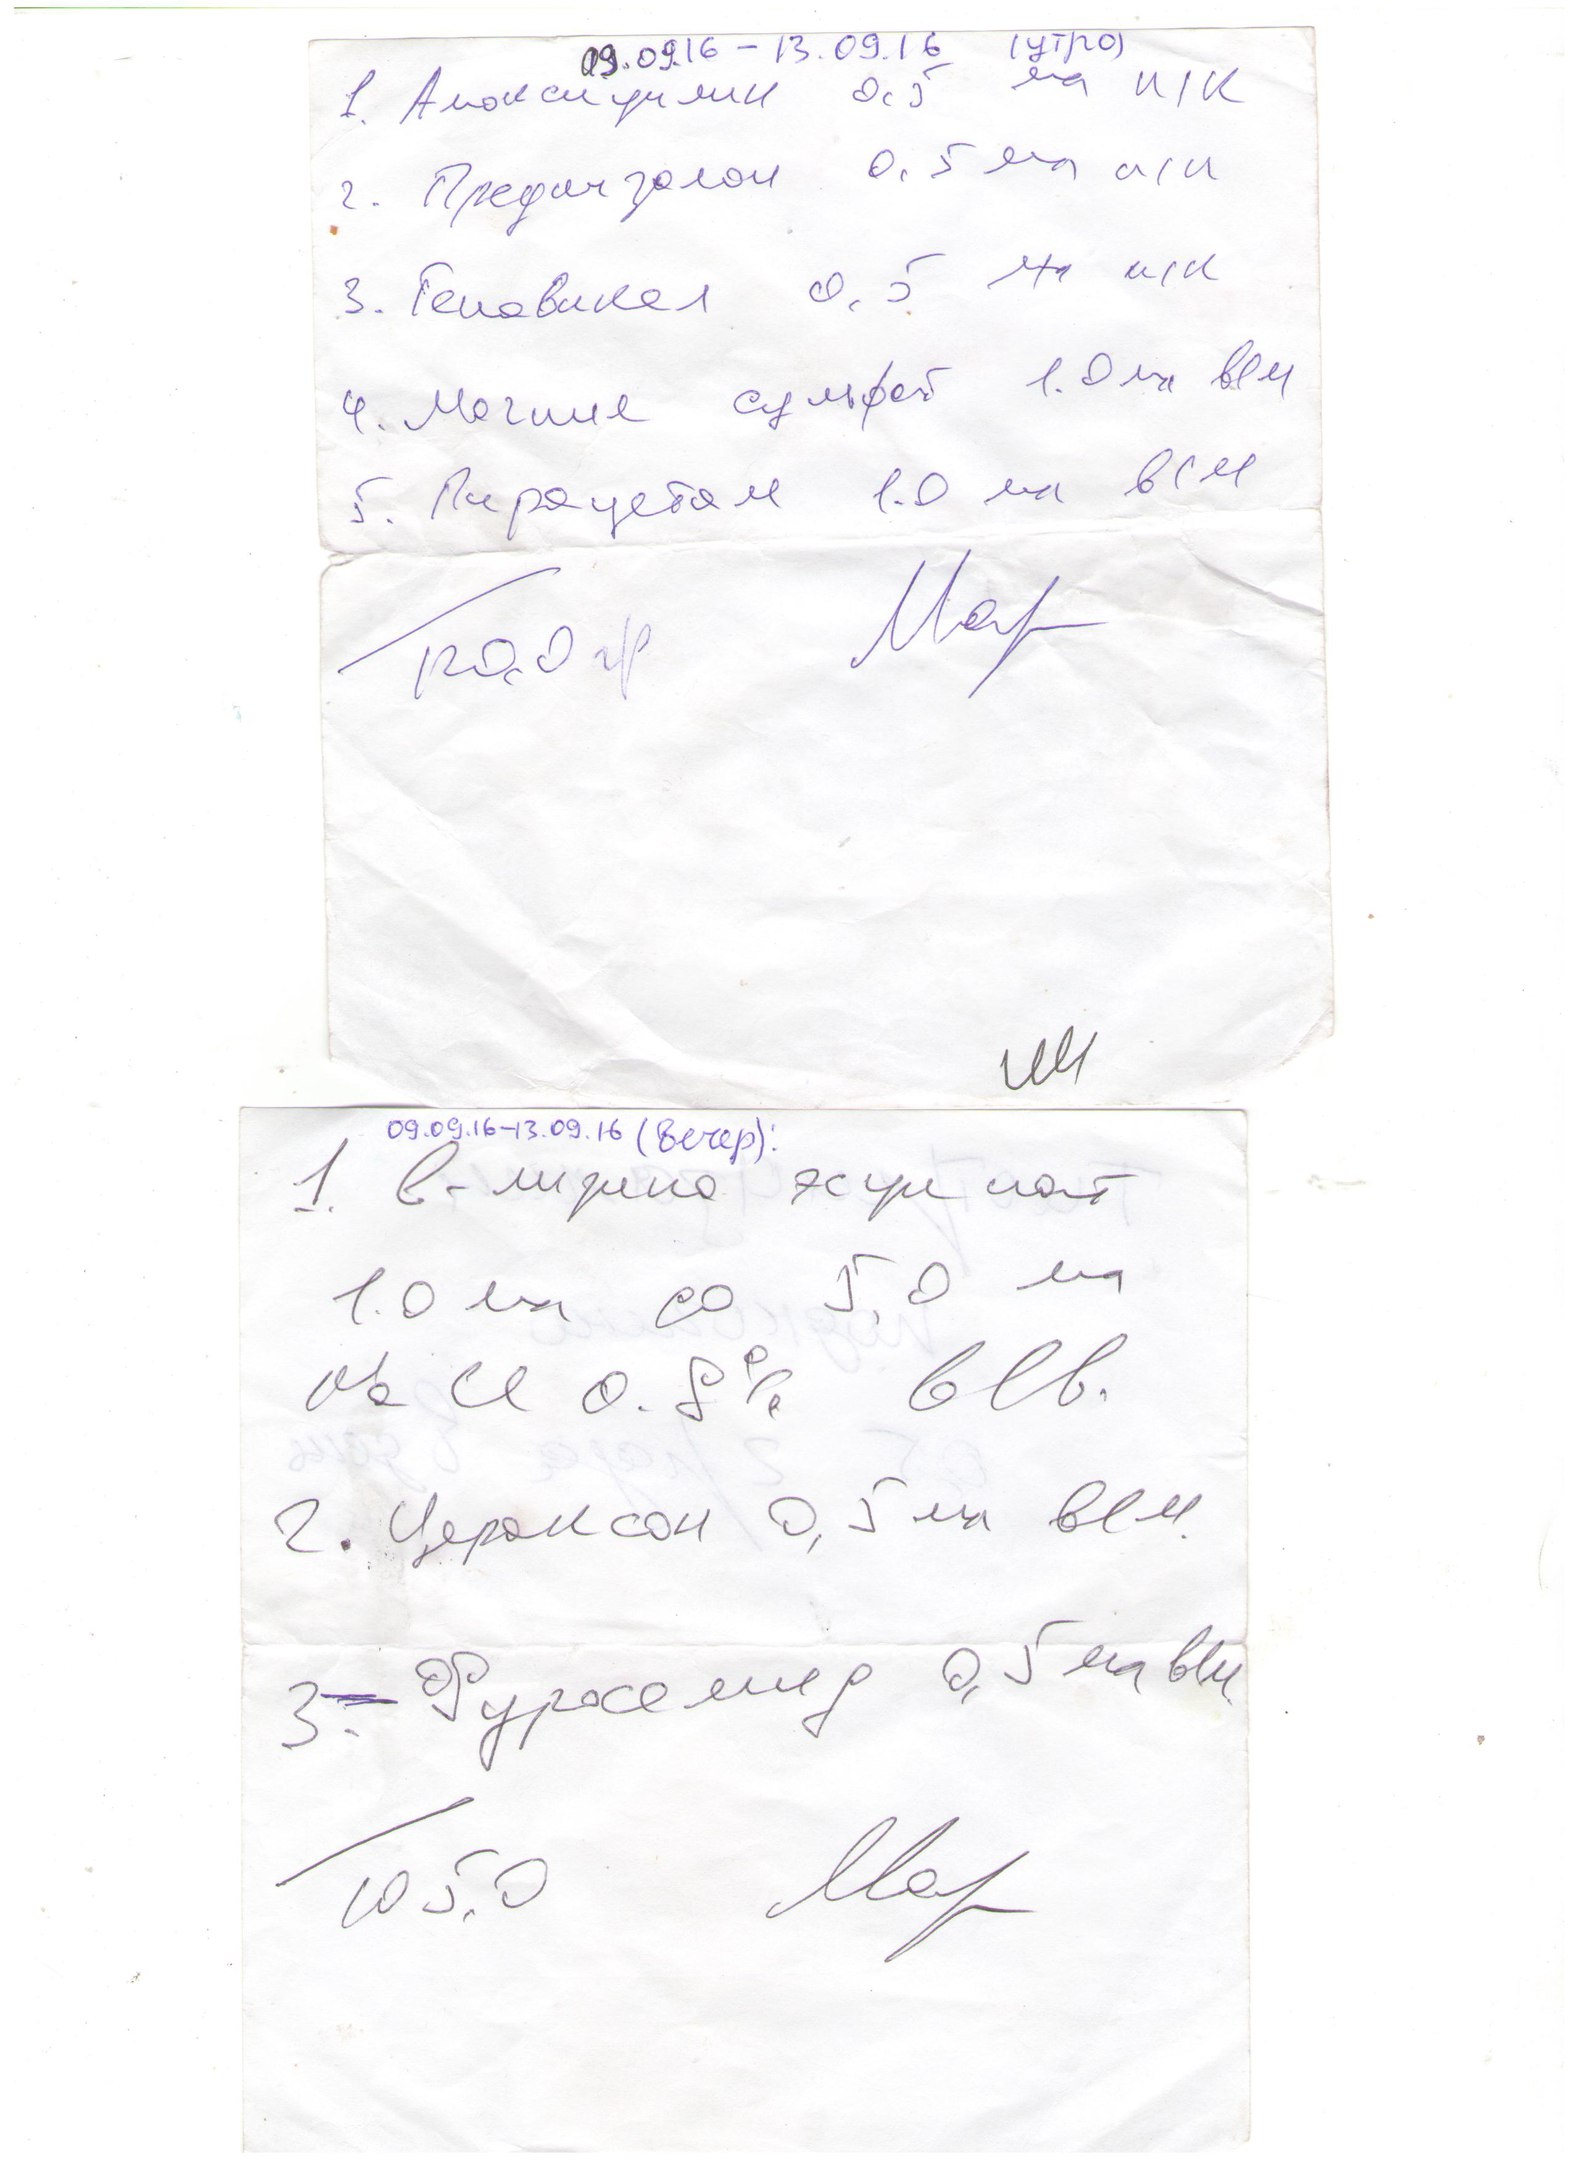 09.09.16 – 13.09.16 (утро)
1. Амоксициллин 0,5 мл п/к
2. Преднизолон 0,5 мл п/к
3. Гамавикел 0,5 мл п/к
4. Магния сульфат 1.0 мл в/м
5. Пирацетам 1.0 мл в/м
120,0 гр
09.09.16–13.09.16 (вечер):
1.
1.0 мл со 5,0 мл
NaCl 0.9% в/в.
2. Цераксон 0,5 мл в/м.
3. Фуросемид 0,5 мл в/м.
105,0